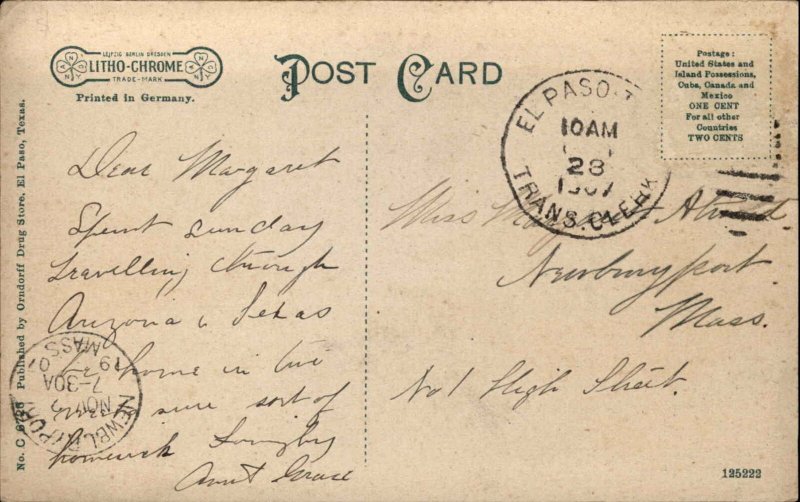 LEIPZIG BERLIN DRESDEN
LITHO-CHROME
TRADE-MARK
Printed in Germany.
POST CARD
Postage:
United States and
Island Possessions,
Cuba, Canada and
Mexico
ONE CENT
For all other
Countries
TWO CENTS
EL PASO
10AM
28
1907
TRANS. CLERK
Dear Margaret
Spent Sunday
travelling through
Arizona & Texas
home in two
sure sort of
homesick Lovingly
Aunt Grace
Miss
Newburyport.
Mass.
No 1 High Street.
NEWBURYPORT
MASS
19 07
7-30A
NOV 3
No. C 6726 Published by Orndorff Drug Store, El Paso, Texas.
125222